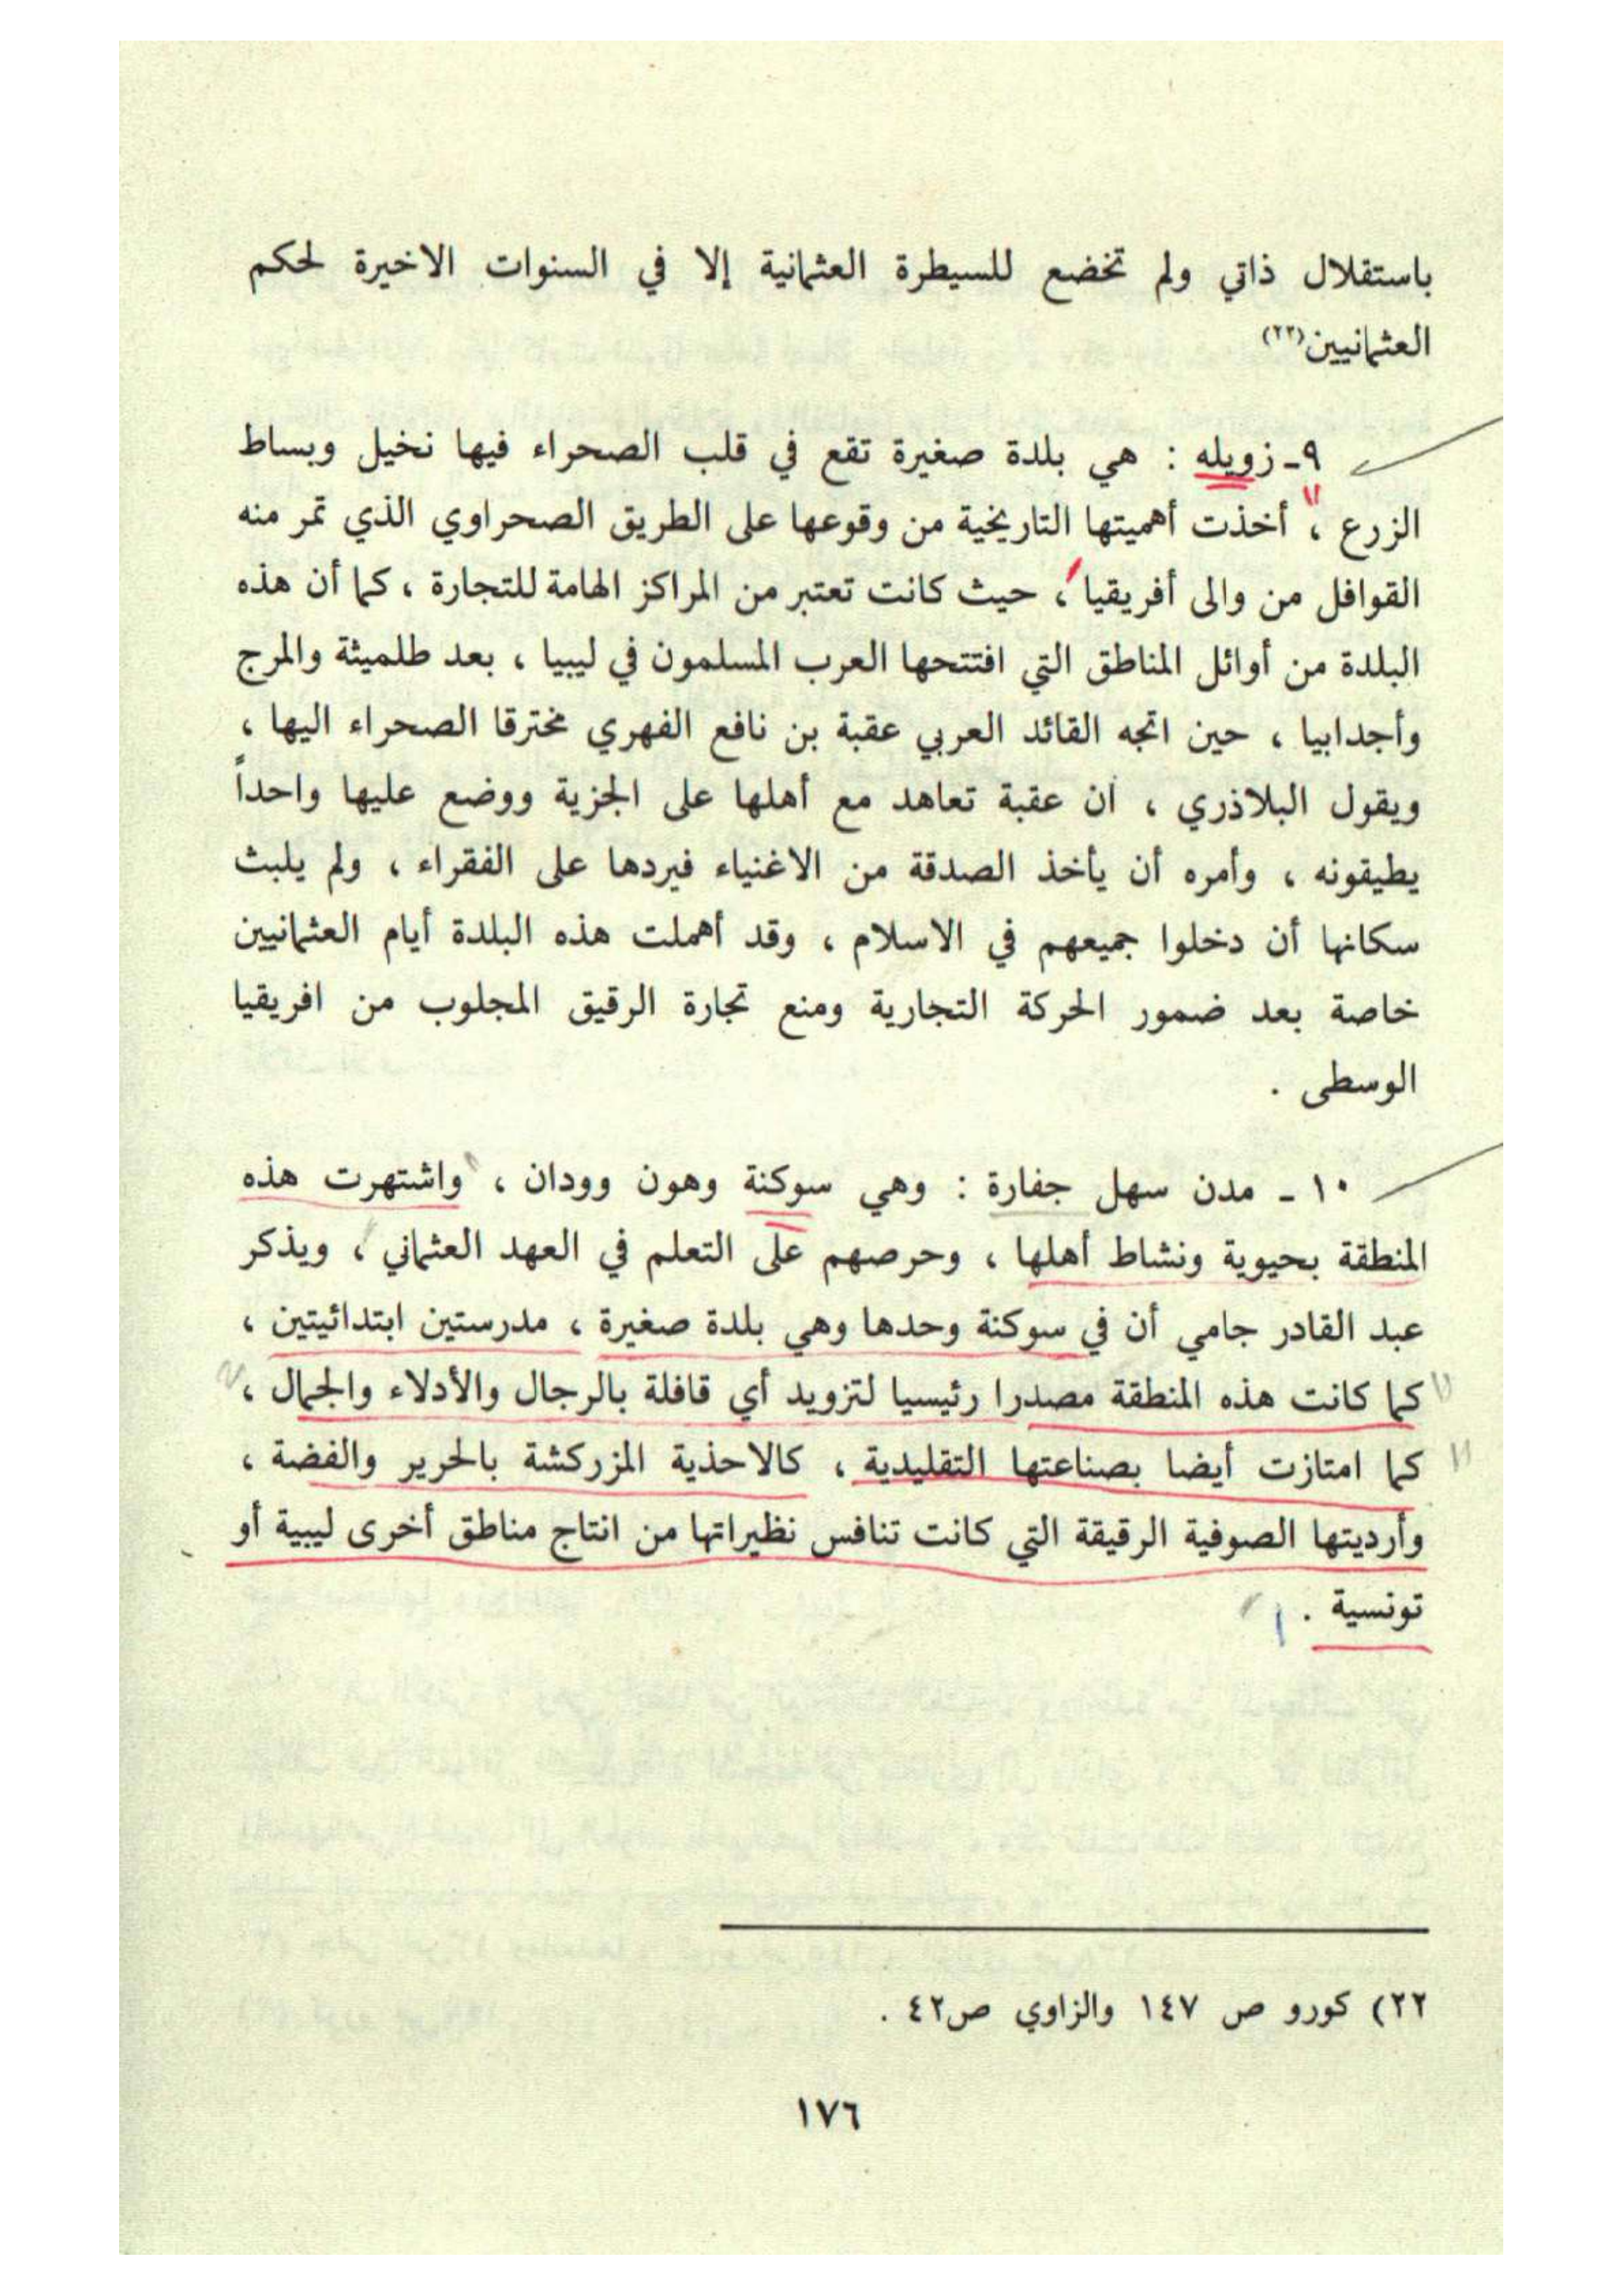 باستقلال ذاتي ولم تخضع للسيطرة العثمانية إلا في السنوات الاخيرة لحكم
العثمانيين(٢٢)
٩ـ زويله : هي بلدة صغيرة تقع في قلب الصحراء فيها نخيل وبساط
الزرع ، أخذت أهميتها التاريخية من وقوعها على الطريق الصحراوي الذي تمر منه
القوافل من والى أفريقيا ، حيث كانت تعتبر من المراكز الهامة للتجارة ، كما أن هذه
البلدة من أوائل المناطق التي افتتحها العرب المسلمون في ليبيا ، بعد طلميثة والمرج
وأجدابيا ، حين اتجه القائد العربي عقبة بن نافع الفهري مخترقا الصحراء اليها ،
ويقول البلاذري ، ان عقبة تعاهد مع أهلها على الجزية ووضع عليها واحداً
يطيقونه ، وأمره أن يأخذ الصدقة من الاغنياء فيردها على الفقراء ، ولم يلبث
سكانها أن دخلوا جميعهم في الاسلام ، وقد أهملت هذه البلدة أيام العثمانيين
خاصة بعد ضمور الحركة التجارية ومنع تجارة الرقيق المجلوب من افريقيا
الوسطى .
١٠ ـ مدن سهل جفارة : وهي سوكنة وهون وودان ، واشتهرت هذه
المنطقة بحيوية ونشاط أهلها ، وحرصهم على التعلم في العهد العثماني ، ويذكر
عبد القادر جامي أن في سوكنة وحدها وهي بلدة صغيرة ، مدرستين ابتدائيتين ،
كما كانت هذه المنطقة مصدرا رئيسيا لتزويد أي قافلة بالرجال والأدلاء والجمال ،
كما امتازت أيضا بصناعتها التقليدية ، كالاحذية المزركشة بالحرير والفضة ،
وأرديتها الصوفية الرقيقة التي كانت تنافس نظيراتها من انتاج مناطق أخرى ليبية أو
تونسية .
٢٢) كورو ص ١٤٧ والزاوي ص٤٢ .
١٧٦